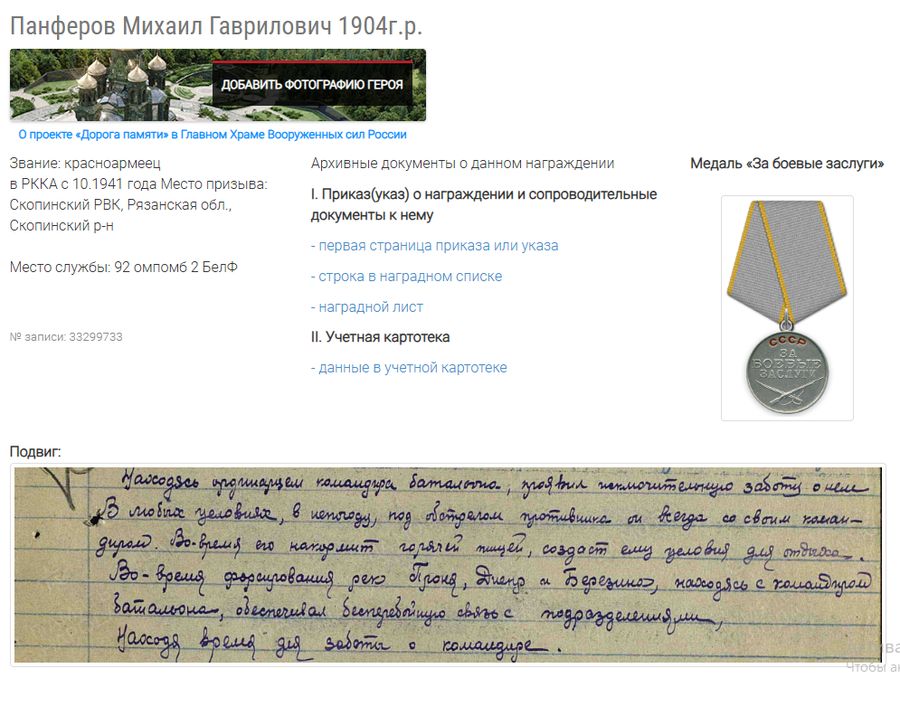 Панферов Михаил Гаврилович 1904г.р.
ДОБАВИТЬ ФОТОГРАФИЮ ГЕРОЯ
О проекте «Дорога памяти» в Главном Храме Вооруженных сил России
Звание: красноармеец
в РККА с 10.1941 года Место призыва:
Скопинский РВК, Рязанская обл.,
Скопинский р-н
Место службы: 92 омпомб 2 БелФ
№ записи: 33299733
Архивные документы о данном награждении
I. Приказ(указ) о награждении и сопроводительные
документы к нему
- первая страница приказа или указа
- строка в наградном списке
- наградной лист
II. Учетная картотека
- данные в учетной картотеке
Медаль «За боевые заслуги»
СССР
ЗА
БОЕВЫЕ
ЗАСЛУГИ
Подвиг:
Находясь ординарцем командира батальона, проявил исключительную заботу о нем
В любых условиях, в непогоду, под обстрелом противника он всегда со своим коман-
диром. Во-время его накормит горячей пищей, создаст ему условия для отдыха.
Во-время форсирования рек Проня, Днепр и Березино, находясь с командиром
батальона, обеспечивал бесперебойную связь с подразделениями,
Находя время для заботы о командире.
Чтобы